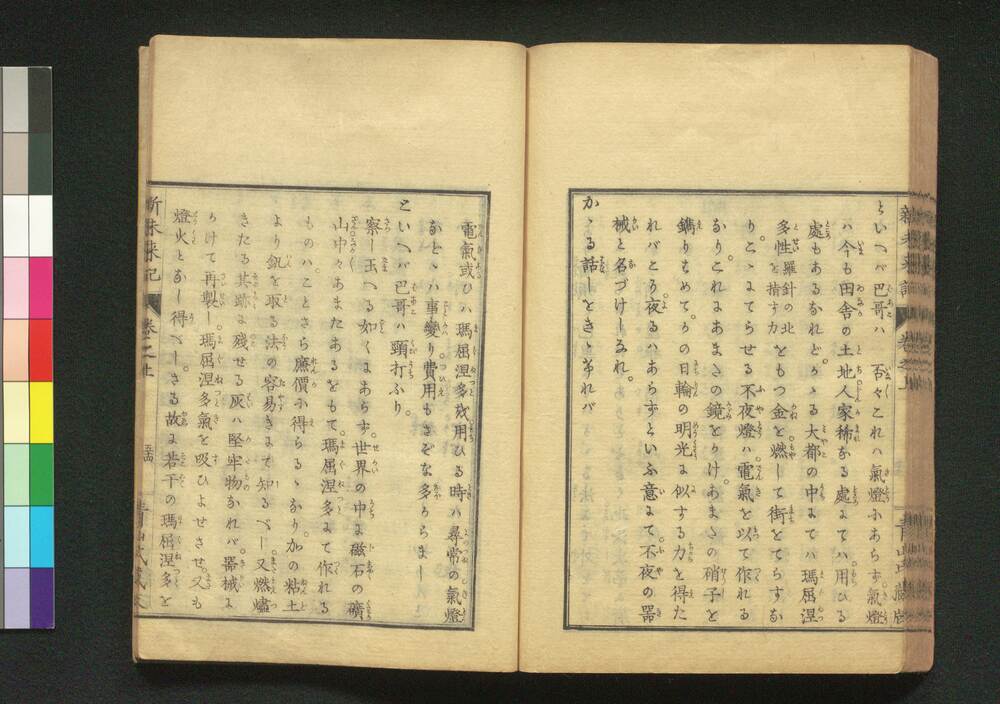 といへバ巴哥ハ 否々これハ氣燈にあらず。氣燈
ハ今も田舎の土地人家稀なる處にてハ用ひる
處もあるなれど。かゝる大都の中にてハ瑪屈涅
多性羅針の北を指す力をもつ金を燃して街をてらすな
り。こゝにてらせる不夜燈ハ電氣を以て作れる
なり。これはあまたの鏡をかけ。あまたの硝子を
鐫りちめて。かの日輪の明光に似する力を得た
れバとり夜るハあらずといふ意にて。不夜の器
械と名づけしなれ。
かゝる話しをときゝ弟れバ
電氣或ひハ瑪屈涅多を用ひる時ハ尋常の氣燈
などゝハ事變り費用もさぞな多からまし
といへバ巴哥ハ頭打ふり。
察し玉へる如くにあらず。世界の中に磁石の礦
山中々あまたあるをもて。瑪屈涅多にて作れる
ものハ。ことさら廉價に得らるゝなり。加の粘土
より鈬を取る法の容易きにて知るべし。又燃燼
きたる其跡に残せる灰ハ堅牢物なれバ。器械に
かけて再製し。瑪屈涅多氣を吸ひよせさせ又も
燈火となし得べし。さる故に若干の瑪屈涅多を
新未来記 巻之上